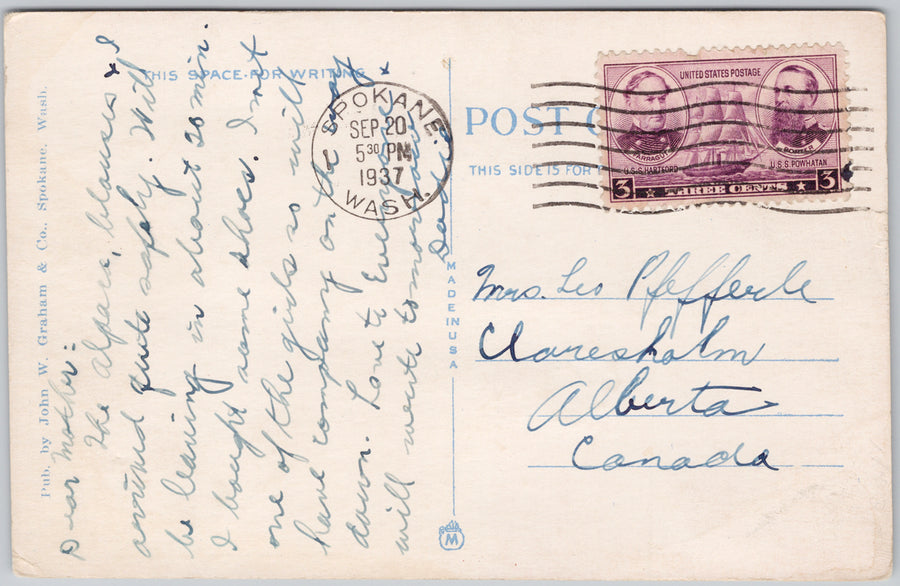 Pub. by John W. Graham & Co., Spokane, Wash.
THIS SPACE FOR WRITING
Dear Mother:-
The Alpaca, blouses & I
arrived quite safely. Will
be leaving in about 20 min.
I bought some shoes. I met
one of the girls so will
have company on the way
down. Love to Everyone &
will write tomorrow.
SPOKANE
SEP 20
5 30 PM
1937
WASH.
MADE IN USA
M
POST C
THIS SIDE IS FOR
UNITED STATES POSTAGE
FARRAGUT
PORTER
U.S.S. HARTFORD
U.S.S. POWHATAN
3 THREE CENTS 3
Mrs. Leo Pfefferle
Claresholm
Alberta
Canada